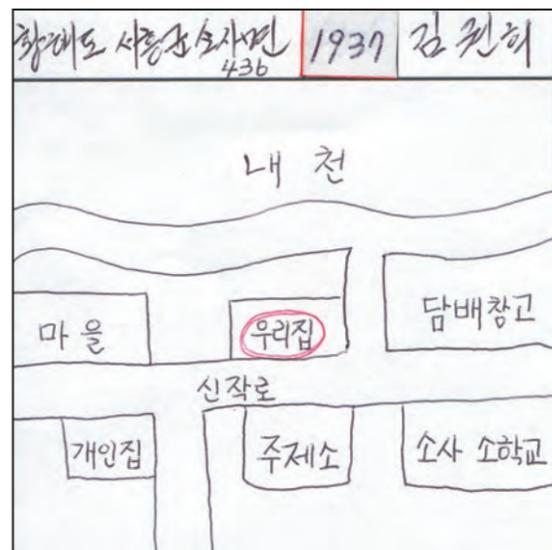 황해도 서흥군 소사면 1937 김권희
436
내천
마을 우리집 담배창고
신작로
개인집 주제소 소사 소학교